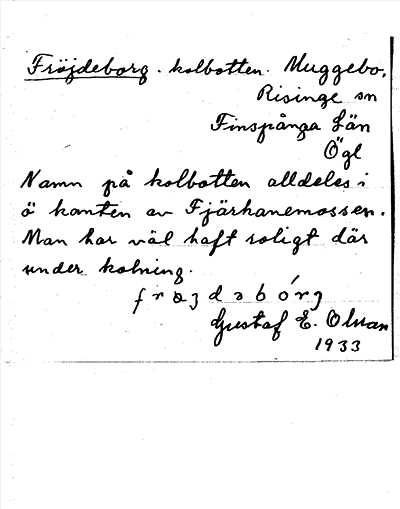 Fröjdeborg. kolbotten. Muggebo,
Risinge sn
Finspånga Län
Ögl
Namn på kolbotten alldeles i
ö kanten av Fjärhanemossen.
Man har väl haft roligt där
under kolning.
Gustaf E. Olsson
1933